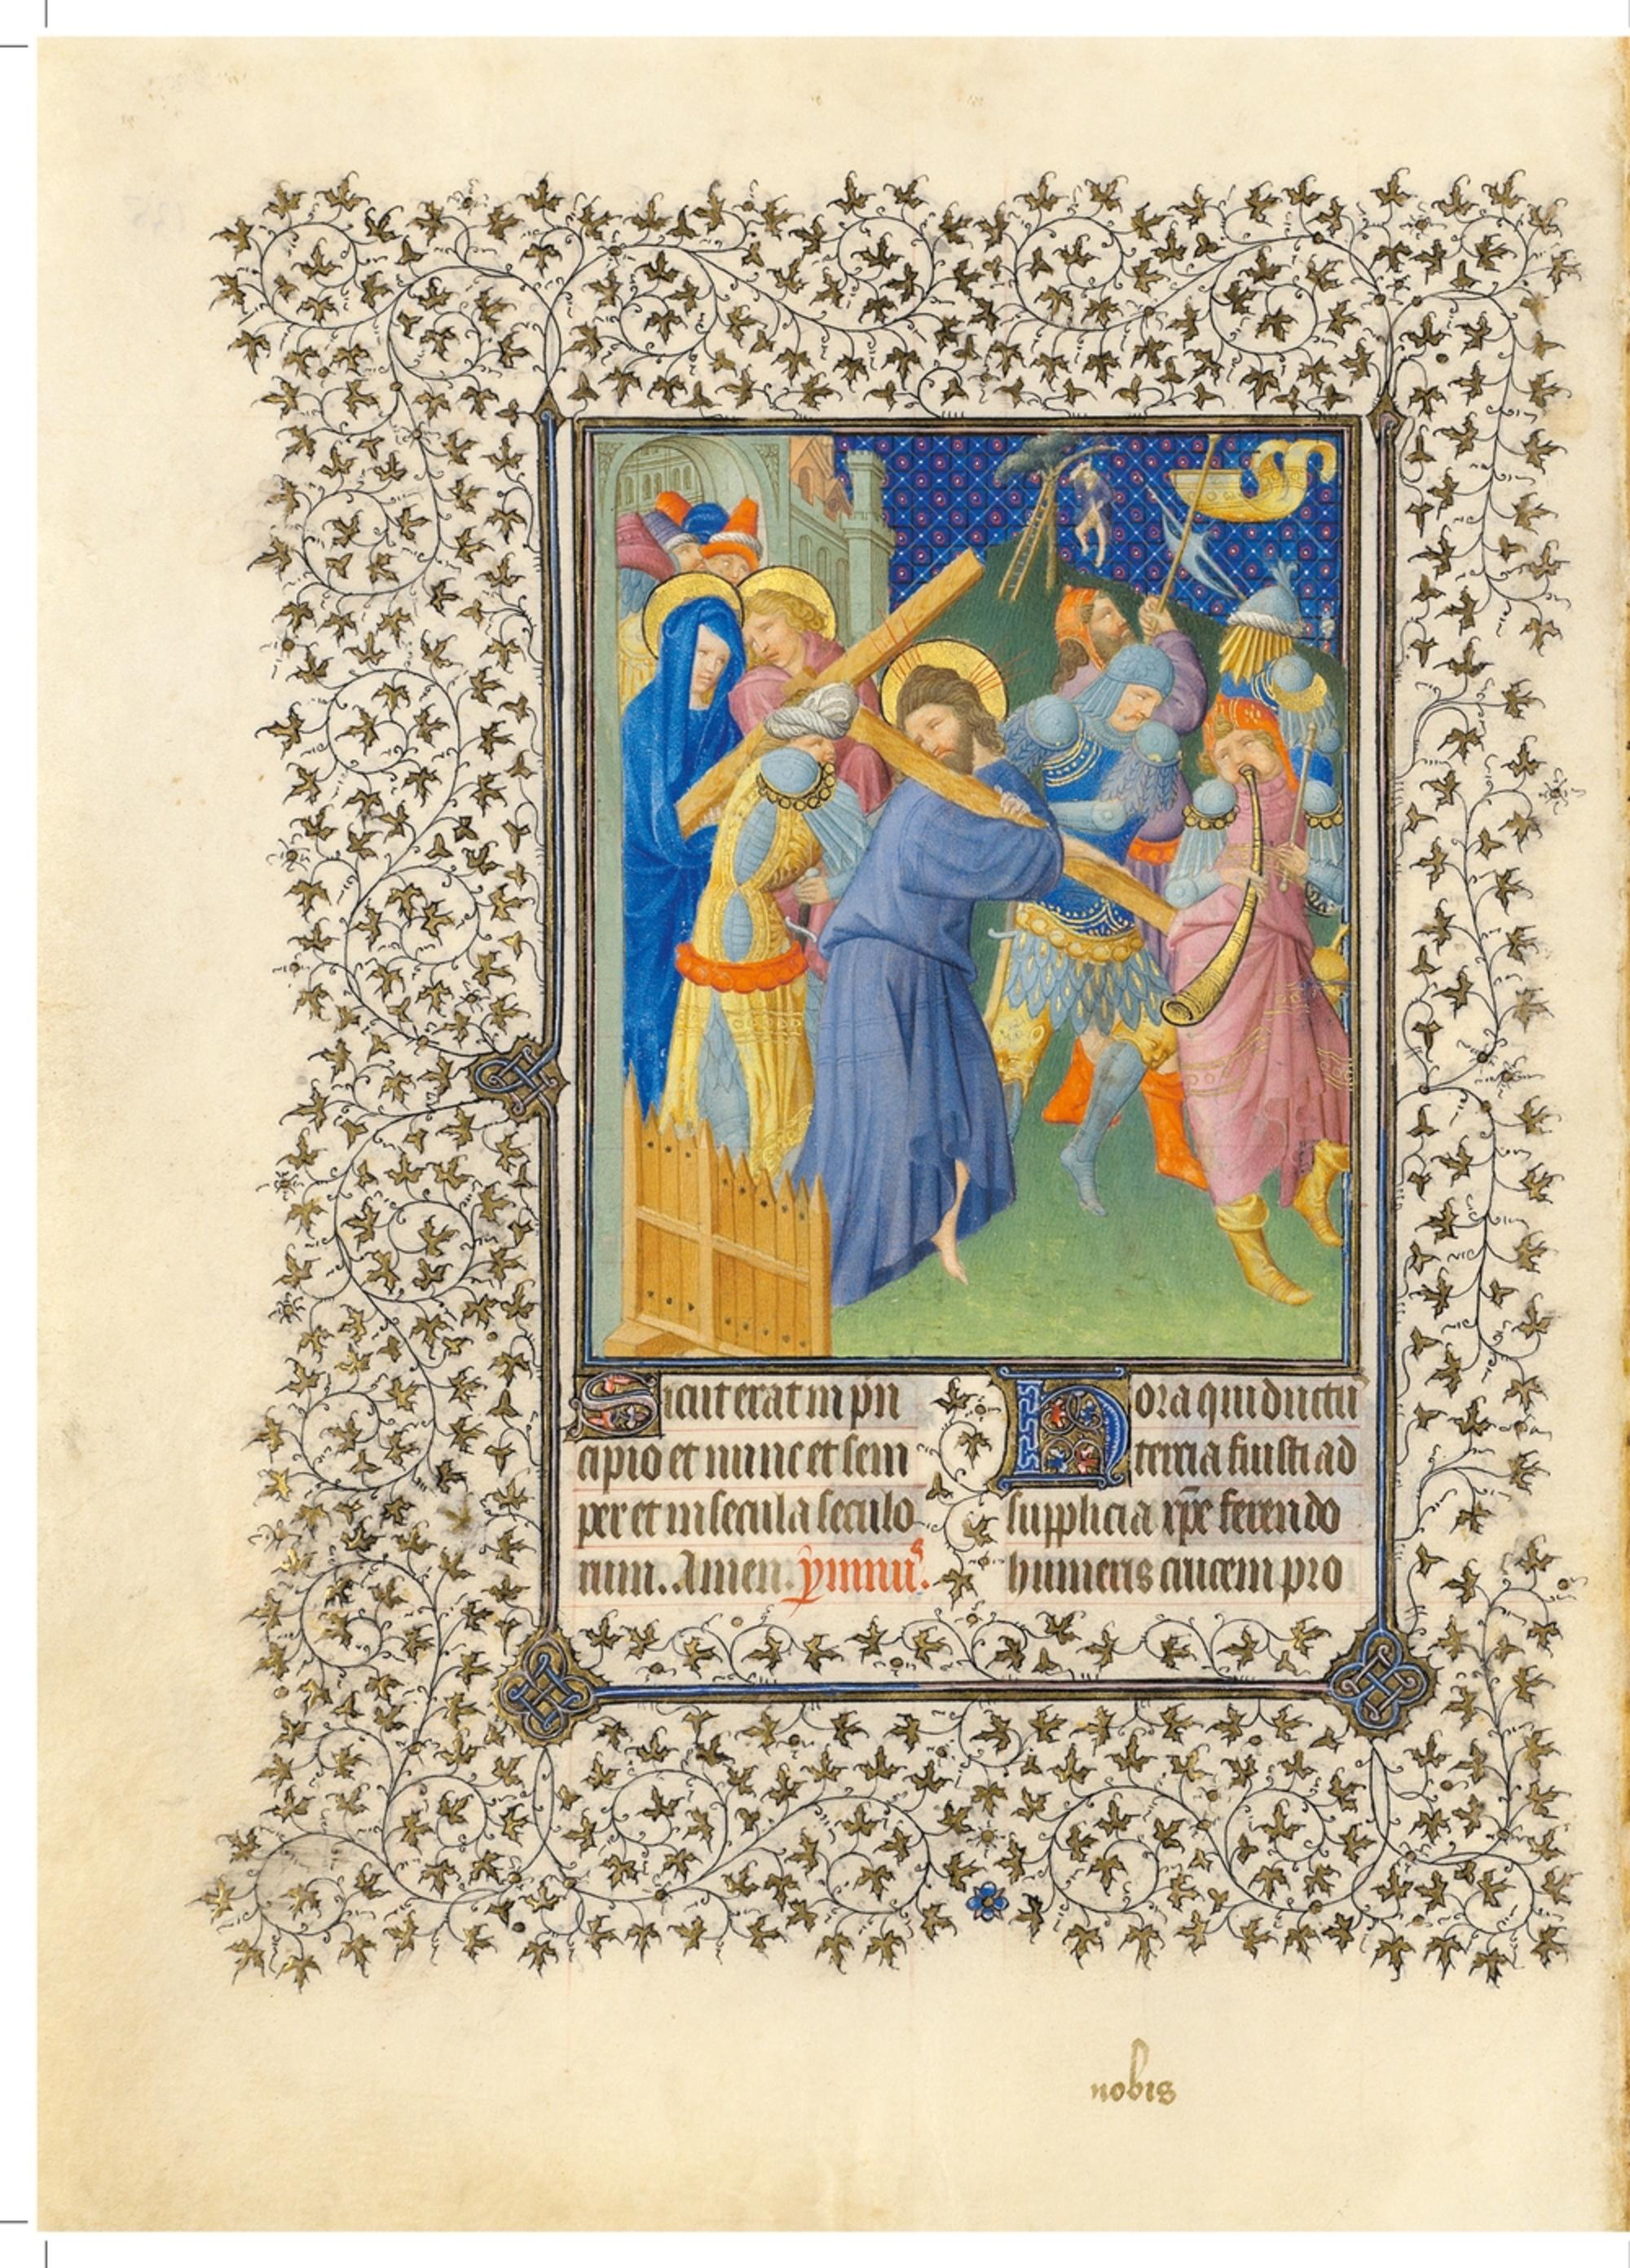 Sicut erat in pn
cipio et nunc et sem
per et in secula seculo
rum. Amen. ymnus.
Hora qui ductu
tercia fuisti ad
supplicia xpe ferendo
humeris crucem pro
nobis